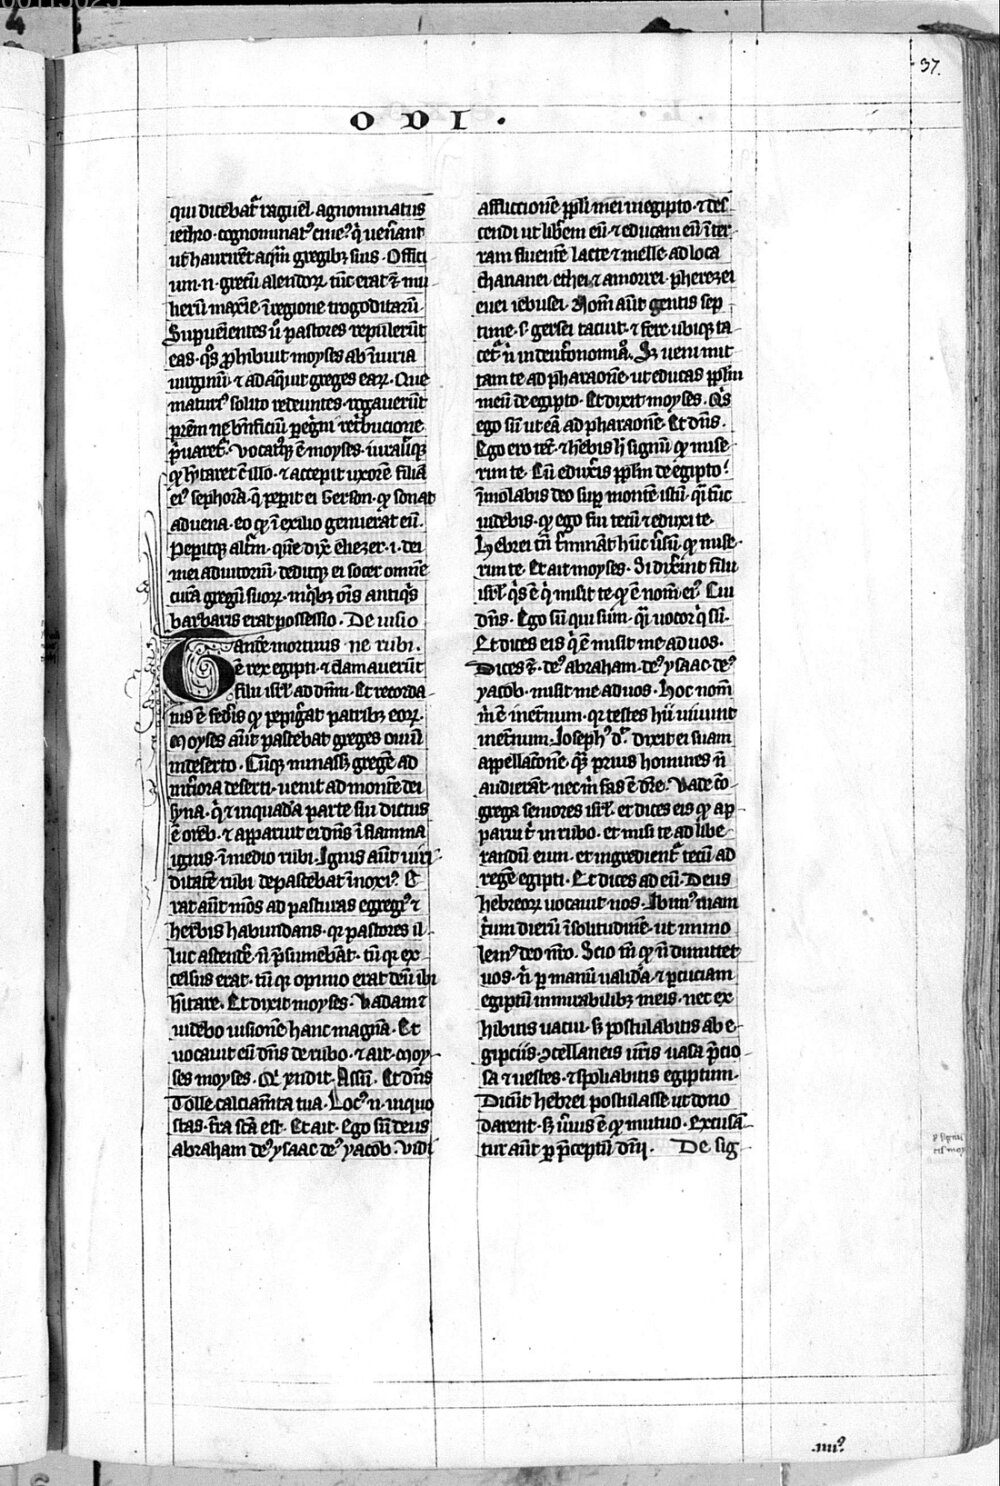 37.
O D I .
qui dicebat᷑ raguel agnominatus
iethro · cognominatꝰ cineꝰ ꝙ̇ ueñant
ut haurirēt aquā gregibꝫ suis · Offici
um · n̄ · gregū alendoꝝ tūc erat ⁊ mu
lierū maxīe ī regione trogoditarū ·
Supueīentes ů pastores repulerūt
eas · qͦs ꝓhibuit moyses ab iīuria
uirginū · ⁊ adaqͣuit greges eaꝝ · Que
maturiꝰ solito redeuntes · rogauerūt
pr̄em ne bn̄ficiū peg̃ni ret̾bucione
pͥuaret᷑ · Vocatꝰqꝫ ē moyses · iurauitqꝫ
ꝙ hītaret cū illo · ⁊ accepit uxorē filiā
eiꝰ sephorā · q̄ peperit ei Gerson · ꝙ sonat
aduena · eo ꝙ ī exilio genuerat eū ·
Peperitqꝫ altm̄ · quē dix̄ Eliezer · i · dei
mei adiutoriū · deditqꝫ ei socer omnē
curā gregū suoꝝ · in qͥbꝫ oīs antiqͥs
barbaris erat possessio . De uisio
ante mortuus ne rubi .
ē rex egipti · ⁊ clamauerūt
filii isrl̄ ad dn̄m · Et recorda
tus ē fed̾is ꝙ pepig̾at patribꝫ eoꝝ ·
Moyses aūt pascebat greges ouiū
in deserto . Cūqꝫ minassꝫ gregē ad
int̾iora deserti · uenit ad montē dei
syna · qͥ ⁊ in quadā parte sui dictus
ē oreb · ⁊ apparuit ei dn̄s ī flamma
ignis · ī medio rubi · Ignis aūt uiri
ditatē rubi depascebat īnoxiꝰ . E
rat aūt mōs ad pascuas egregiꝰ ⁊
herbis habundans · qꝛ pastores il
luc ascendẽ · n̄ p̄sumebāt · tū qꝛ ex
celsus erat · tū qꝛ opinio erat deū ibi
hītare . Et dixit moyses · Vadam ⁊
uidebo uisionē hanc magnā . Et
uocauit eū dn̄s de rubo · ⁊ ait · Moy
ses moyses . Qͥ r̄ndit · Assū . Et dn̄s
Tolle calciam̄ta tua . Locꝰ · n̄ · in quo
stas · t̄ra sc̄a est . Et ait . Ego sū deus
abraham deꝰ ysaac deꝰ yacob . Vidi
afflictionē ppl̄i mei in egipto · ⁊ des
cendi ut lib̾em eū · ⁊ educam eū ī ter
ram fluentē lacte ⁊ melle · ad loca
chananei · ethei · ⁊ amorrei · pherezei
euei · iebusei . Nom̄ aūt gentis sep
time · s · gersei tacuit · ⁊ fere ubiqꝫ ta
cet᷑ n̄ in deut̾onomio . Sꝫ ueni mit
tam te ad pharaonē · ut educas ppl̄m
meū de egipto . Et dixit moyses . Qͥs
ego sū ut eā ad pharaonē . Et dn̄s .
Ego ero tecū · ⁊ hēbis h̄ signū ꝙ mise
rim te . Cū eduxͥs ppl̄m de egipto ·
īmolabis deo sup̄ montē istū · qͥ tūc
uidebis · ꝙ ego fui tecū ⁊ eduxi te .
Hebrei tn̄ t̾minant hūc u̾sū · ꝙ mise
rim te . Et ait moyses . Si dix̾int filii
isrl̄ · qͥs ē qͥ misit te · ꝙ ē nom̄ eiꝰ . Cui
dn̄s . Ego sū qui sum · qͥ uocor qͥ sū .
Et dices eis qͥ ē misit me ad uos .
Dices ⁊ · deꝰ abraham · deꝰ ysaac · deꝰ
yacob · misit me ad uos . Hoc nom̄
m̄ ē inet̾num · qꝛ testes hii uiuunt
inet̾num . Josephꝰ dͭ · dixit ei suam
appellacionē · quā prius homines n̄
audierāt · nec m̄ fas ē dr̄e . Vade cō
grega seniores isrl̄ · et dices eis ꝙ ap
parui t̄ in rubo · et misi te ad libe
randū eum · et ingredient᷑ tecū ad
regē egipti . Et dices ad eū . Deus
hebreoꝝ uocauit uos . Ibimꝰ uiam
t̾um dierū ī solitudinē · ut īmmo
lemꝰ deo nr̄o . Scio tn̄ ꝙ n̄ dimittet
uos · n̄ ꝑ manū ualidā · ⁊ ꝑcuciam
egiptū in mirabilibꝫ meis · nec ex
hibitis uacui · s̄ postulabitis ab e
gipciis · ⁊ cellaneis ur̄is uasa p̄cio
sa ⁊ uestes · ⁊ spoliabitis egiptum ·
Dicūt hebrei postulasse ut dono
darent · sꝫ uerius ē ꝙ mutuo . Excusā
tur aūt ꝑ p̄ceptū dn̄i . De sig
.iiii.ꝰ